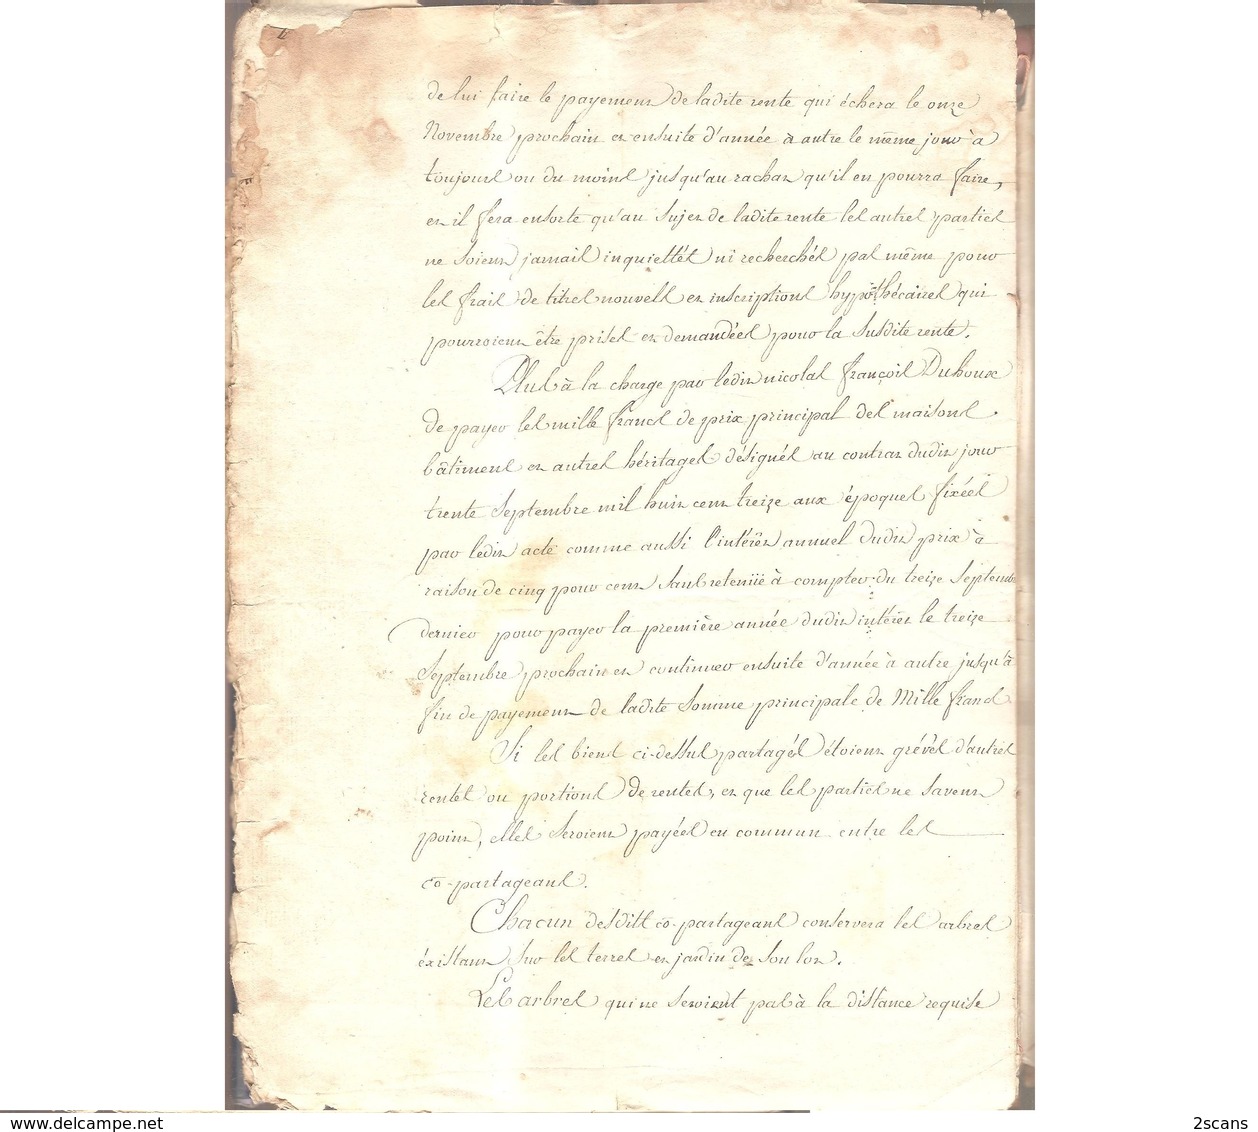 de lui faire le payement de ladite rente qui échera le onze
Novembre prochain et ensuite d'année à autre le même jour à
toujours ou du moins jusqu'au rachat qu'il en pourra faire,
et il fera ensorte qu'au sujet de ladite rente les autres parties
ne soient jamais inquiettés ni recherchés pas même pour
les frais de titres nouvels et inscriptions hypothécaires qui
pourroient être prises et demandées pour la susdite rente.
Plus à la charge par ledit nicolas françois Duhoux
de payer les mille francs de prix principal des maisons
bâtiments et autres héritages désignés au contrat dudit jour
trente Septembre mil huit cent treize aux époques fixées
par ledit acte comme aussi l'intérêt annuel dudit prix à
raison de cinq pour cent sans retenüe à compter du treize Septembre
dernier pour payer la première année dudit intérêt le treize
Septembre prochain et continuer ensuite d'année à autre jusqu'à
fin de payement de ladite Somme principale de Mille francs
Si les biens ci-dessus partagés étoient grévés d'autres
rentes ou portions de rentes, et que les parties ne savent
point, elles seroient payées en commun entre les
co-partageans.
Chacun desdits co-partageans conservera les arbres
éxistans sur les terres et jardin de son lot.
Les arbres qui ne seroient pas à la distance requise
www.delcampe.net
2scans